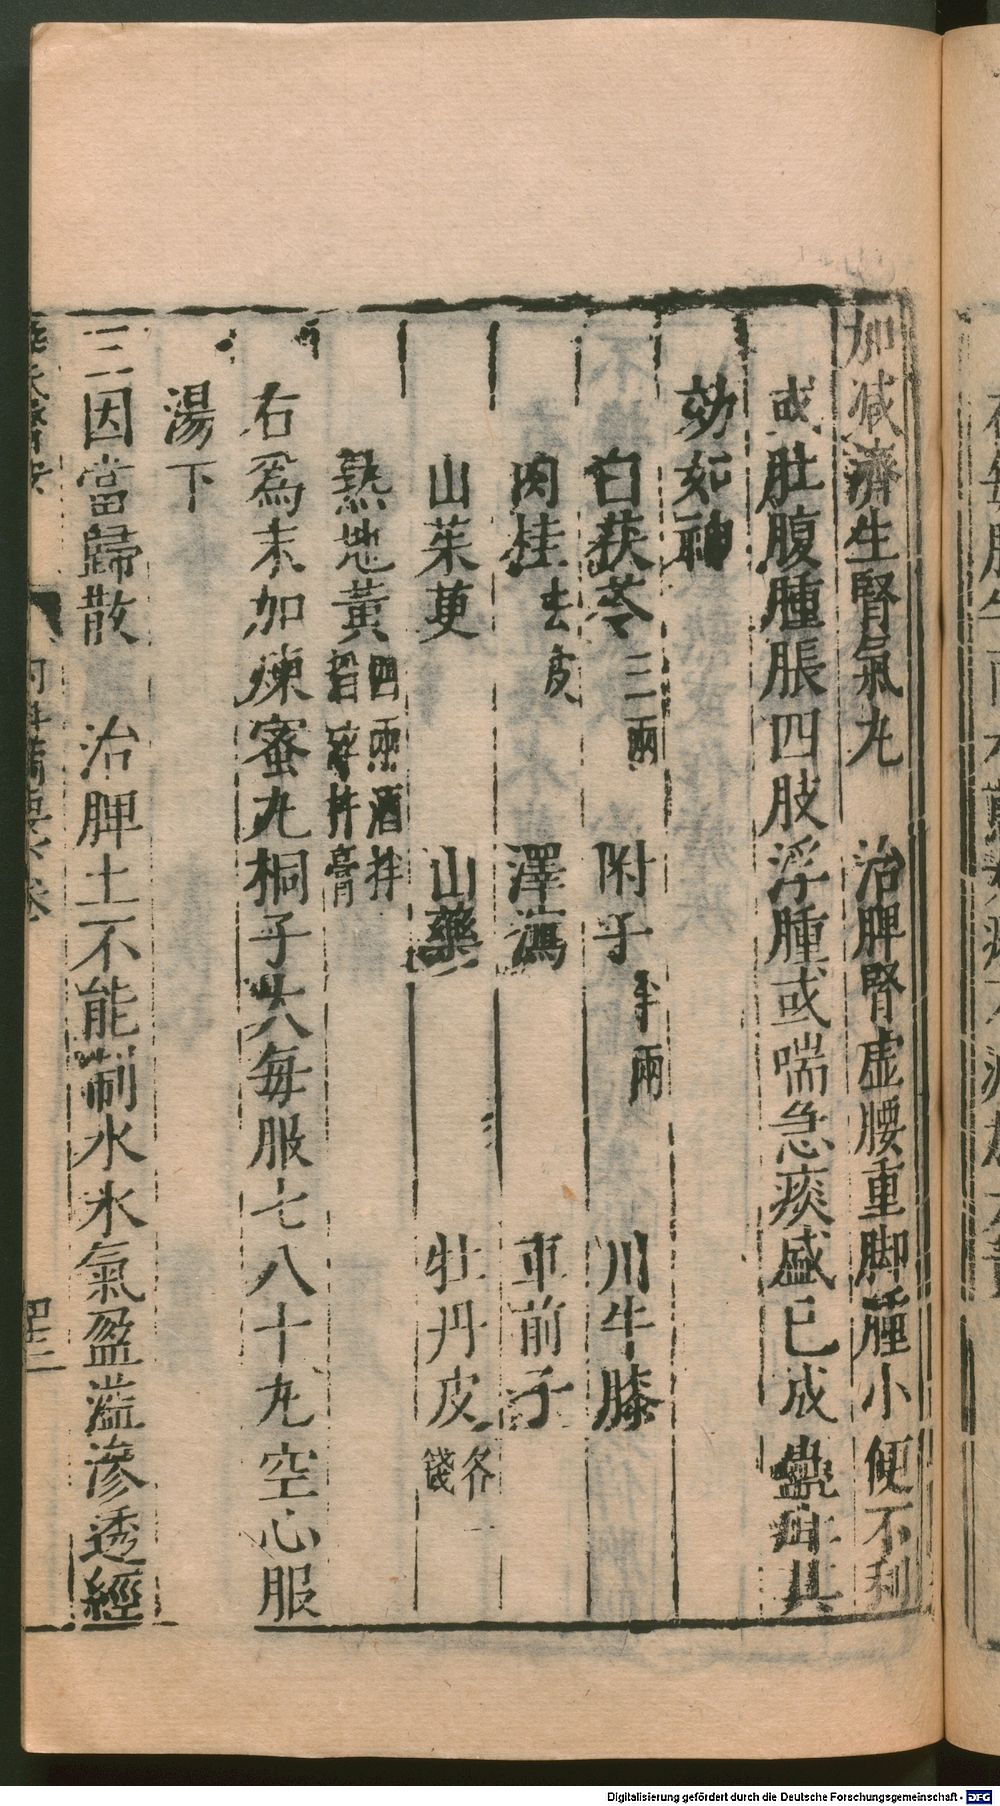 加減濟生腎氣丸　治脾腎虛腰重脚腫小便不利
或肚腹腫脹四肢浮腫或喘急痰盛已成蠱症其
効如神
白茯苓三兩　附子半兩　川牛膝
肉桂去皮　澤瀉　車前子
山茱萸　山藥　牡丹皮各一錢
熟地黃四兩酒拌搗碎杵膏
右為末加煉蜜丸桐子大每服七八十丸空心服
湯下
三因當歸散　治脾土不能制水水氣盈溢滲透經
內科摘要下卷
四十三
Digitalisierung gefördert durch die Deutsche Forschungsgemeinschaft - DFG